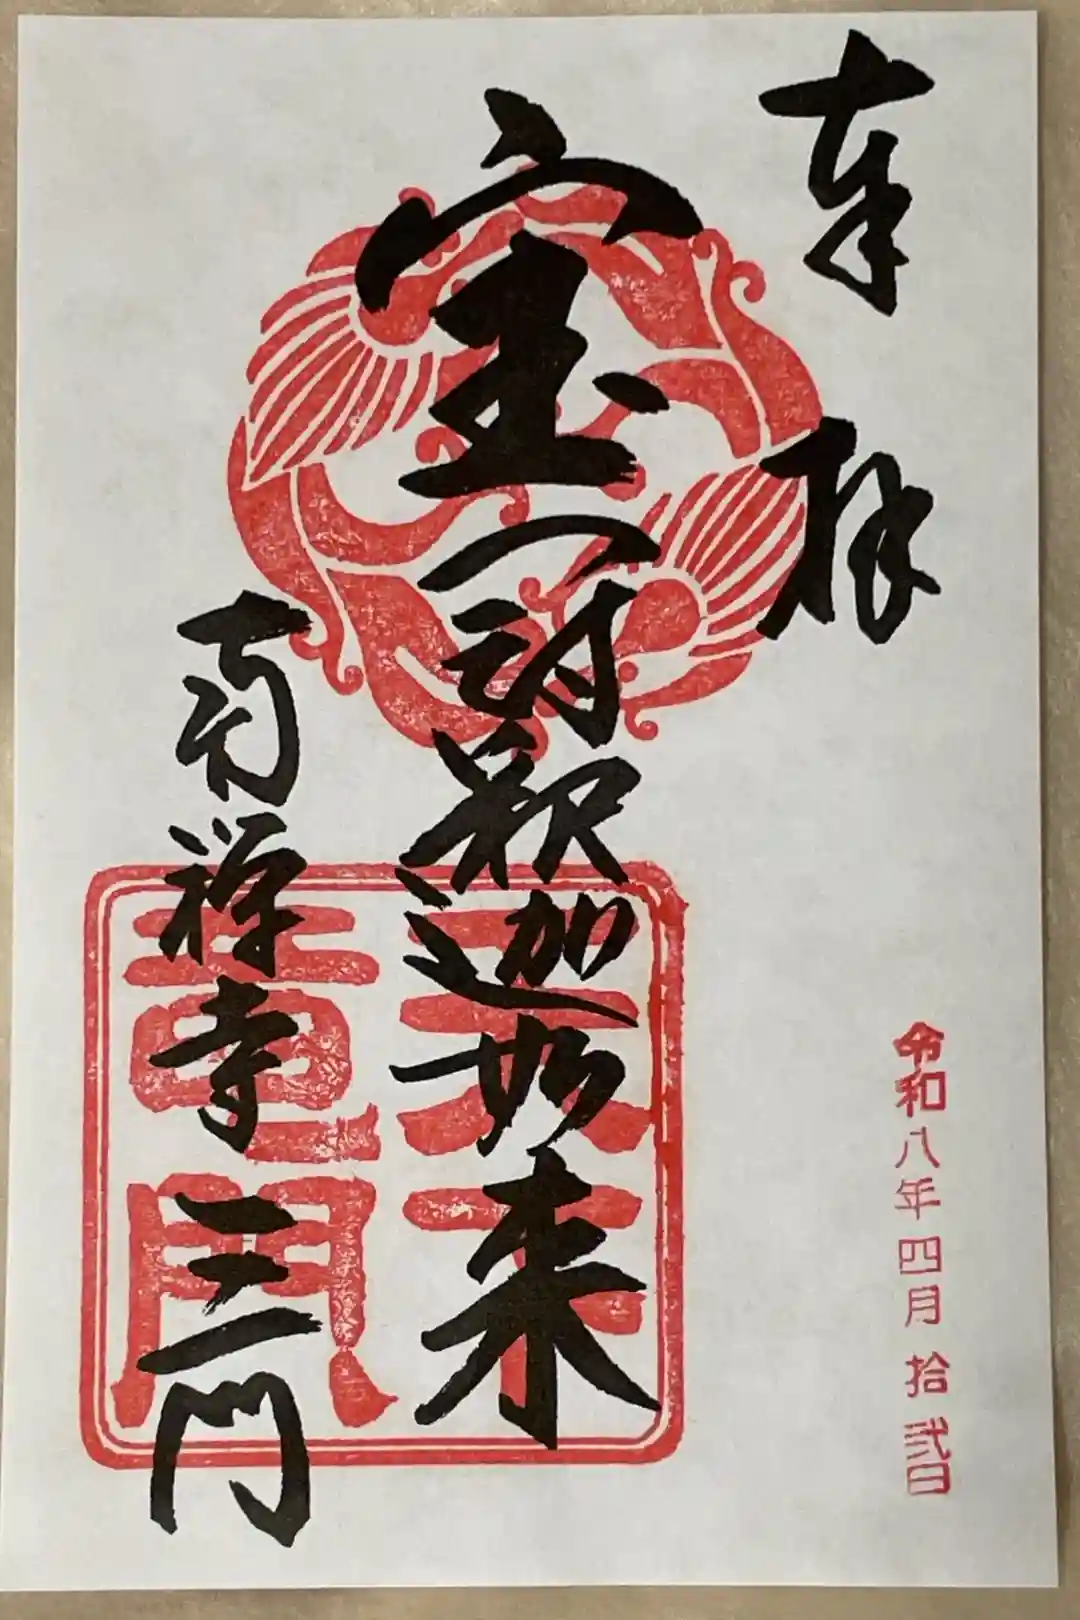 奉拝
令和八年四月拾弐日
宝冠釈迦如来
南禅寺三門